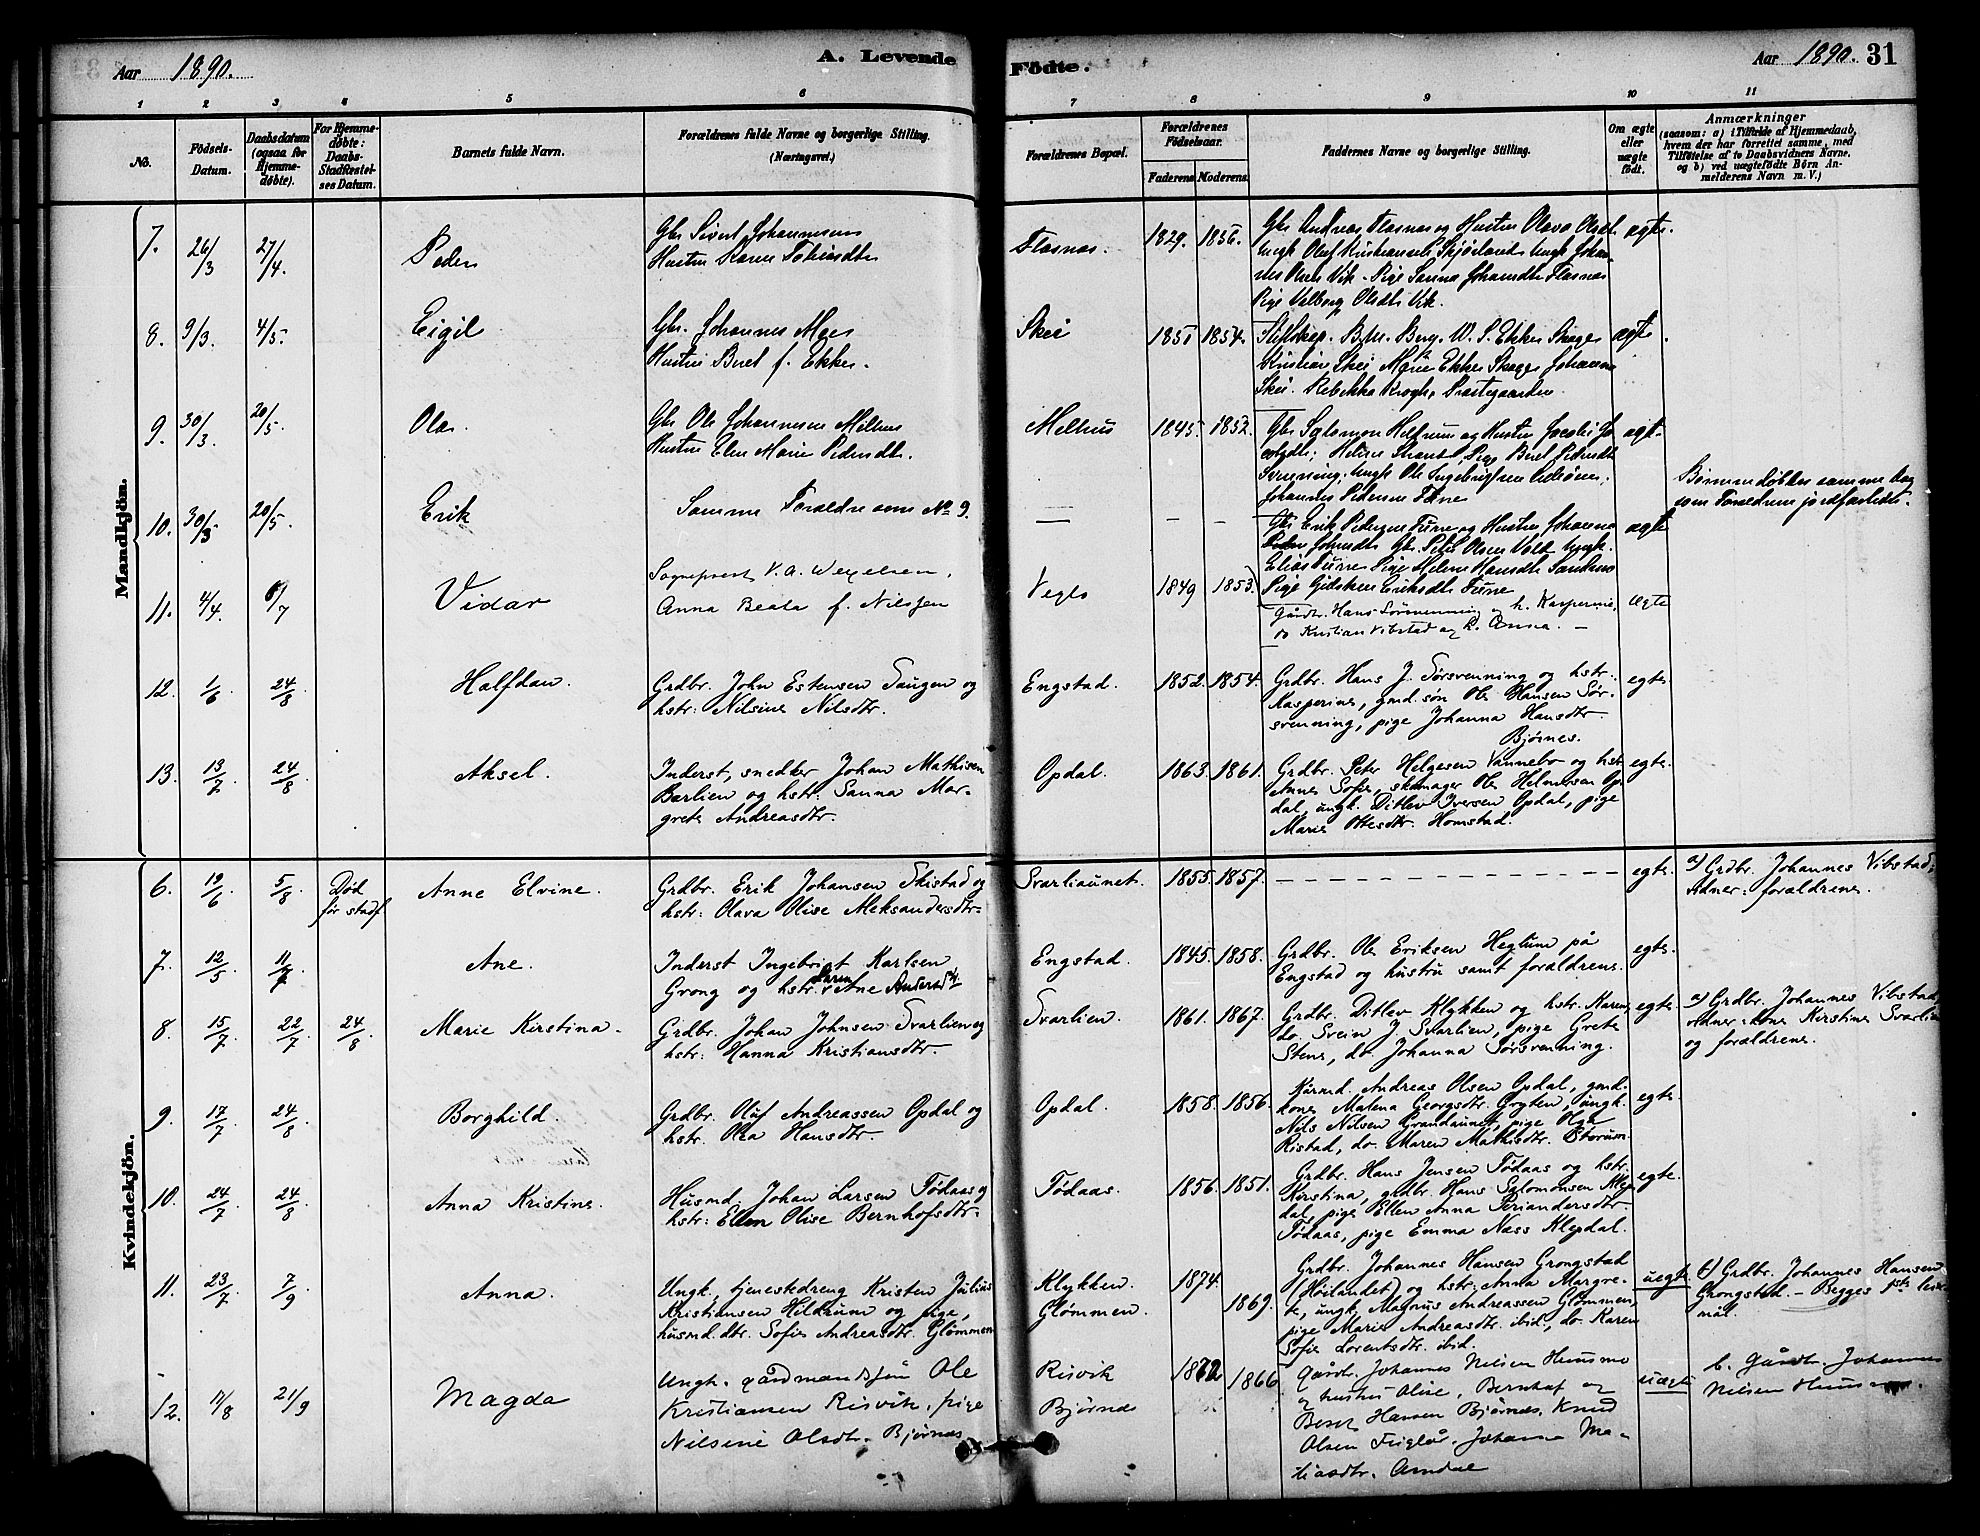 Aar 1890.
A. Levende Födte.
Aar 1890. 31
1 2 3 4 5 6 7 8 9 10 11
No.
Födsels-Datum.
Daabsdatum (ogsaa for Hjemme-døbte).
For Hjemme-døbte: Daabs-Stadfæstel-ses Datum.
Barnets fulde Navn.
Forældrenes fulde Navne og borgerlige Stilling.
(Næringsvei.)
Forældrenes Bopæl.
Forældrenes Födselsaar.
Faderens Moderens.
Faddernes Navne og borgerlige Stilling.
Om ægte eller uægte født.
Anmærkninger
(saasom: a) i Tilfælde af Hjemmedaab, hvem der har forrettet samme, med Tilföielse af to Daabsvidners Navne, og b) ved uægtefødte Børn An-melderens Navn m. V.)
Mandkjön.
7. 26/3 27/4. Peder Gbr Sivert Johannesen
Hustru Karen Tobiasdtr Flasnæs. 1829. 1856. Gbr Andreas Flasnæs og Hustru Olava Olsdt. ægte.
Ungk Oluf Kristiansen Ungk Johan-
nes Olsen Vik. Pige Sanna Johansdtr Flasnæs
Pige Valborg Olsdtr Vik.
8. 9/3. 4/5. Eigil Gbr. Johannes Moe
Hustru Beret f. Ekker. Skei 1851 1854. Berg. W. S. Ekker Skage ægte.
Kristian Skei Marie Ekker Skage Johanna
Skei. Rebekka Krogh, Præstegaarden
9. 30/3. 20/5. Ole. Gbr Ole Johannesen Melhus
Hustru Elen Marie Pedersdtr. Melhus 1845. 1852. Gbr Salomon og Hustru
Pige Beret Pedersdtr
Svenning, Ungk Ole
Johannes Pedersen Turne ægte.
10. 30/3 20/5. Erik Samme Forældre som No 9. — - - Gbr Erik Pedersen Turne og Hustru Johanna ægte
Gbr. Peter Olsen Ungk.
Elias Turne Pige Helene Hansdtr
Pige Gidsken Eriksdtr Turne
Børnene døbtes samme dag
som Forældrene jordfæstedes.
11. 4/4. 6/7 Vidar Sogneprest V. A. Wexelsen,
Anna Beata f. Nilssen Veglo 1849 1853. Gårdbr. Hans Sørsvenning og h. Kasperine,
og Kristian Vibstad og h. Anna. — ægte
12. 1/6. 24/8. Halfdan. Grdbr. John Estensen Saugen og
hstr: Nilsine Nilsdtr. Engstad. 1852. 1854. Grdbr. Hans J. Sørsvenning og hstr: egte.
Kasperine, gmd.søn Ole Hansen Sør-
svenning, pige Johanna Hansdtr.
Bjørnes.
13. 13/7. 24/8. Aksel. Inderst, snedker Johan Mathisen
Barlien og hstr: Sanna Mar-
grete Andreasdtr. Opdal. 1863. 1861. Grdbr. Peter Helgesen Vannebo og hstr egte.
Anne Sofie, skomager Ole Helmersen Op-
dal, ungk. Ditlev Iversen Opdal, pige
Marie Ottesdtr. Homstad.
Kvindekjön.
6. 19/6. 5/8. Død
før stadf. Anne Elvine. Grdbr. Erik Johansen Skistad og
hstr: Olava Olise Aleksandersdtr. Svarliaunet. 1855. 1857. - - - - egte. a) Grdbr. Johannes Vibstad;
vidner: forældrene.
7. 12/5. 11/7. Ane. Inderst Ingebrigt Karlsen
Grong og hstr. Karen Ane Andersd. Engstad. 1845. 1858. Grdbr. Ole Eriksen Heglum på
Engstad og hustru samt forældrene. egte.
8. 15/7 22/7 24/8 Marie Kirstina. Grdbr. Johan Johnsen Svarlien og
hstr: Hanna Kristiansdtr. Svarlien. 1861. 1867. Grdbr. Ditlev Klykken og hstr. Karen,
do. Svein J. Svarlien, pige Grete
Stene, do. Johanna Sørsvenning. egte. a) Grdbr. Johannes Vibstad,
vidner: kone Kirstine Svarlien
og forældrene.
9. 17/7. 24/8. Borghild. Grdbr. Oluf Andreassen Opdal og
hstr. Olea Hansdtr. Opdal. 1858. 1856. Kårmd. Andreas Olsen Opdal, gmd.
kone Matena Georgsdtr. Gryten, ungk.
Nils Nilsen Grandaunet, pige Olga
Ristad, do. Maren Mathisdtr. Storum. egte.
10. 24/7. 24/8. Anna Kristine. Husmd. Johan Larsen Tødaas og
hstr: Ellen Olise Bernhofsdtr. Tødaas. 1856. 1851. Grdbr. Hans Jensen Tødaas og hstr.
Kirstina, grdbr. Hans Salomonsen Klep-
dal, pige Ellen Anna Periandersdtr.
Tødaas, pige Emma Næss Klepdal. egte.
11. 23/7. 7/9. Anna. Ungk., tjenestedreng Kristen Julius
Kristiansen Hildrum og pige,
husmd.dtr. Sofie Andreasdtr. Glømmen Klykken.
Glømmen. 1874. 1869. Grdbr. Johannes Hansen Grongstad
(Høilandet) og hstr: Anna Margre-
te, ungk. Magnus Andreassen Glømmen,
pige Marie Andreasdtr. ibid., do. Karen
Sofie Lorentsdtr. ibid. uegte b) Grdbr. Johannes Hansen
Grongstad. — Begges 1ste leier-
mål.
12. 11/8 21/9 Magda Ungk. gårdmandssøn Ole
Kristiansen Risvik, pige
Nilsine Olsdtr. Bjørnes Risvik
Bjørnes 1872 1866 Gårdbr. Johannes Nilsen Hummo
og hustru Olise, Bernhof og
Beret Hansen Bjørnes, Knud
Olsen Fuglår, Johanna Ma-
tiasdtr. Amdal uægte b. Gårdbr. Johannes
Nilsen Hummo.